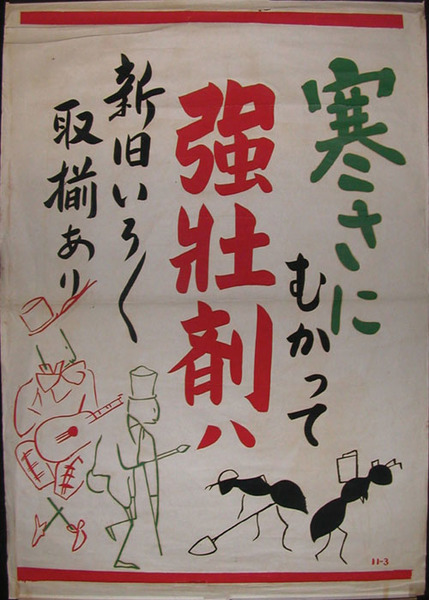 寒さに
むかって
強壯剤ハ
新旧いろ〱
取揃あり
11-3